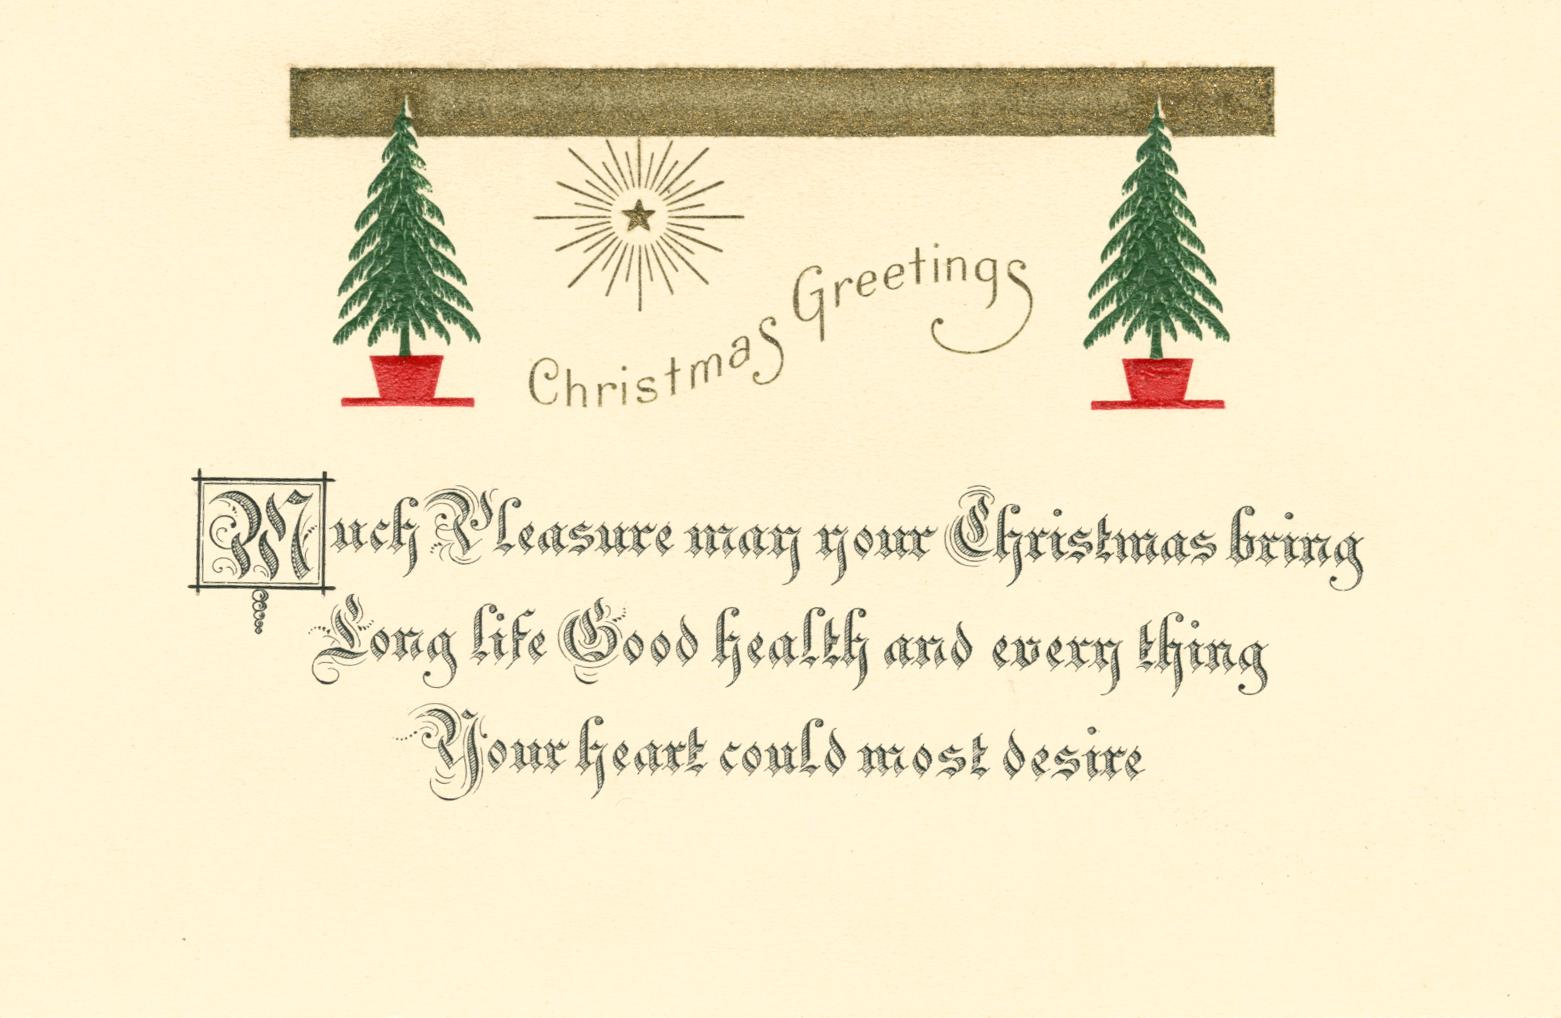 Christmas Greetings
Much Pleasure may your Christmas bring
Long life Good health and every thing
Your heart could most desire